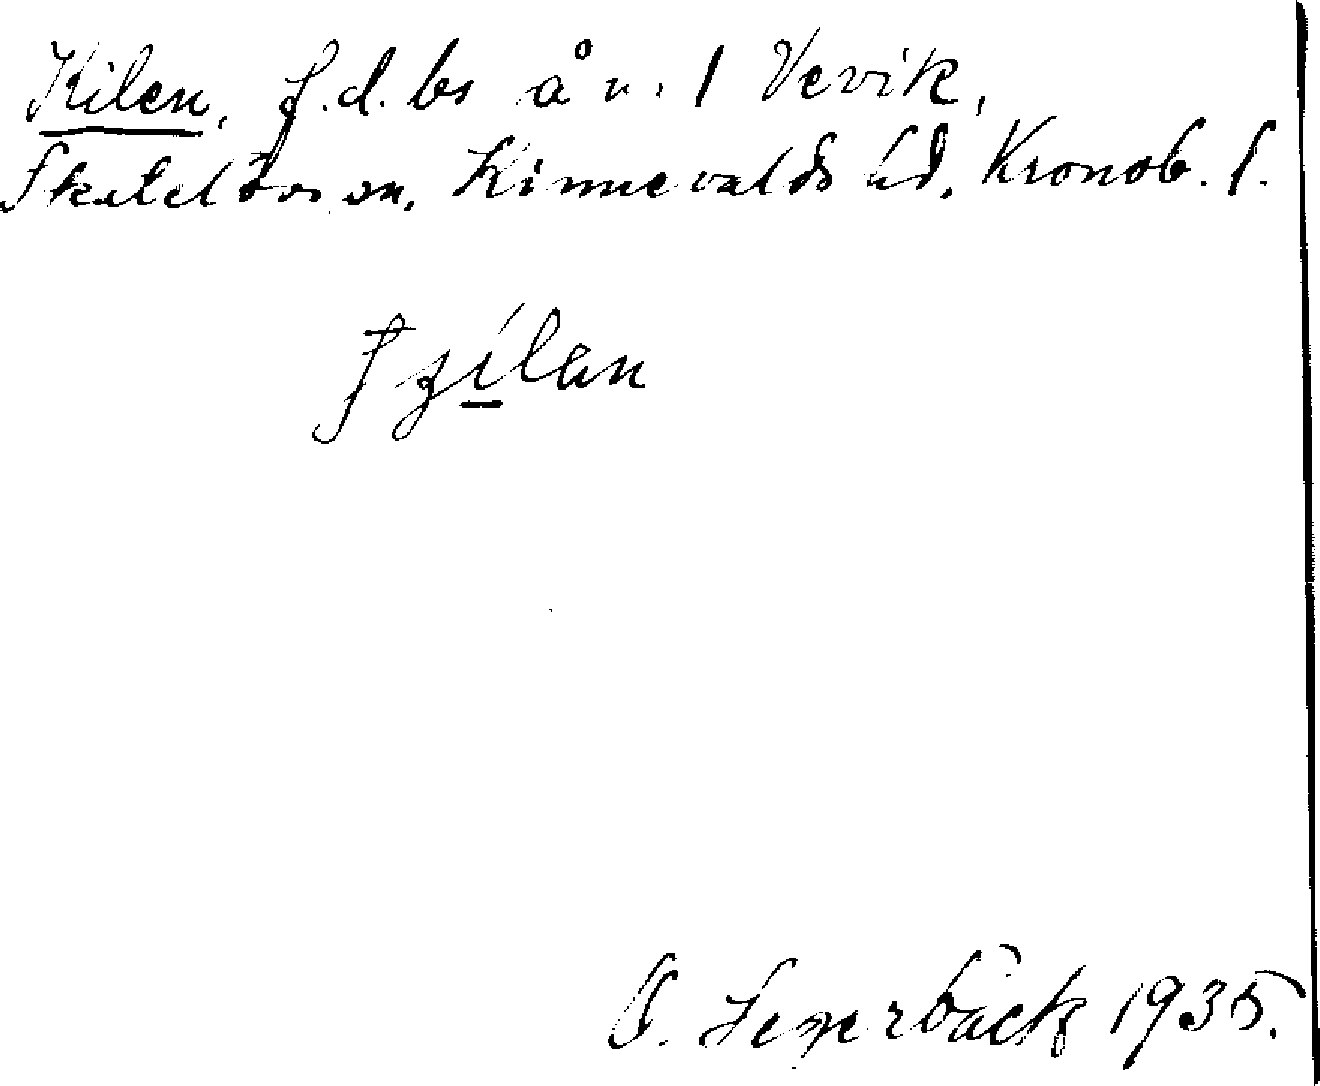 Kilen, f.d. bs å n. 1 Vevik,
Skatelövs sn. Kinnevalds hd. Kronob. l.
O. Lexerbäck 1935.